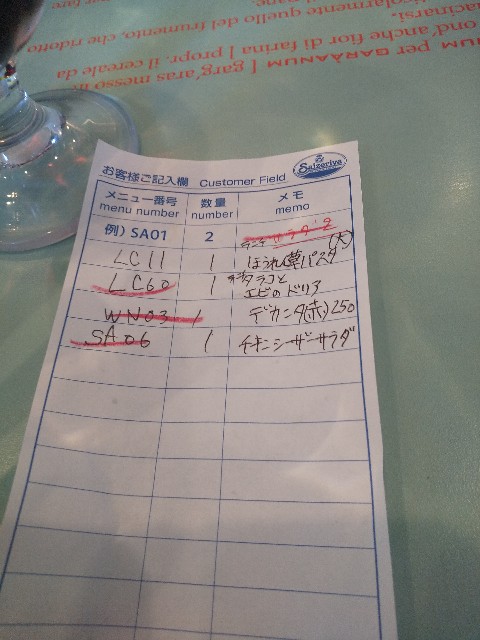 ond'anche fior di farina [ propr. il cereale da
NUM per GARĀANUM [ garg'aras messo in
icolarmente quello del frumento, che ridotto
acinarsi.
per fare
お客様ご記入欄 Customer Field Saizeriya
メニュー番号 数量 メモ
menu number number memo
例) SA01 2 サラダ2
LC11 1 ランチ ほうれん草パスタ(大)
LC60 1 タラコと
エビのドリア
WN03 1 デカンタ(赤)250
SA06 1 チキンシーザーサラダ